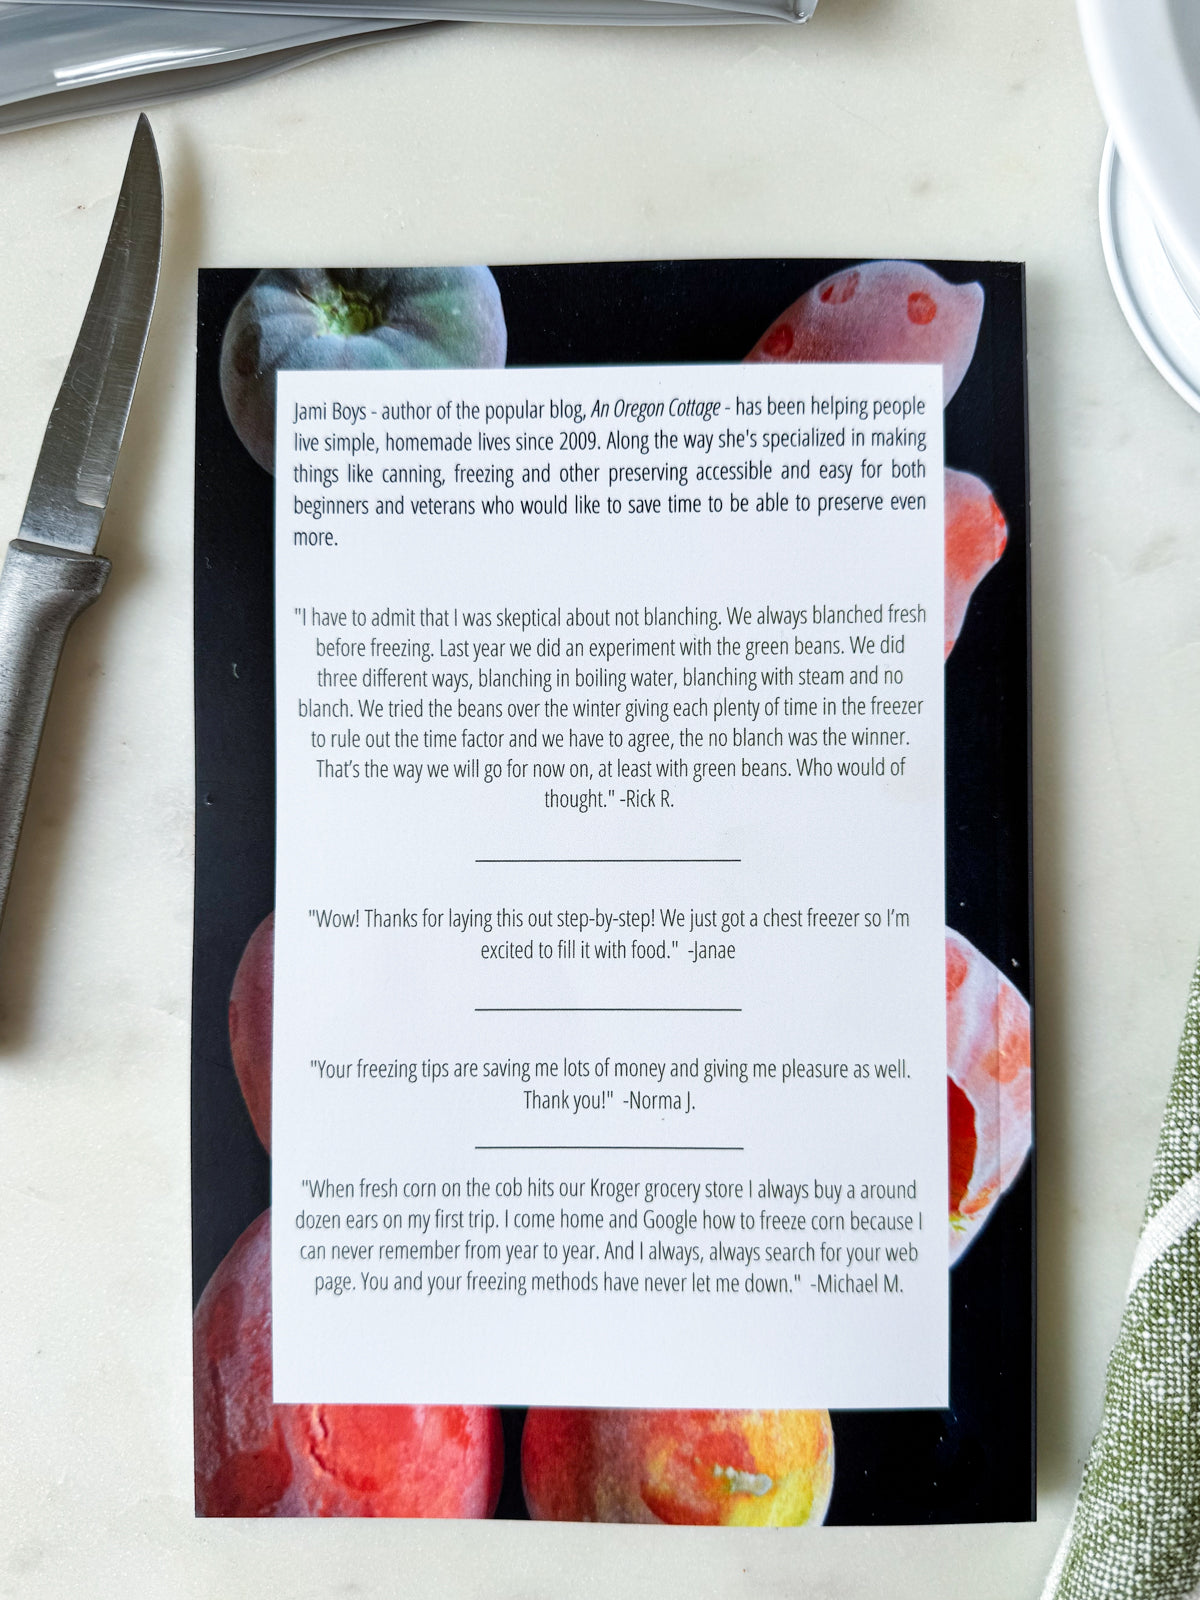 Jami Boys - author of the popular blog, An Oregon Cottage - has been helping people
live simple, homemade lives since 2009. Along the way she's specialized in making
things like canning, freezing and other preserving accessible and easy for both
beginners and veterans who would like to save time to be able to preserve even
more.
"I have to admit that I was skeptical about not blanching. We always blanched fresh
before freezing. Last year we did an experiment with the green beans. We did
three different ways, blanching in boiling water, blanching with steam and no
blanch. We tried the beans over the winter giving each plenty of time in the freezer
to rule out the time factor and we have to agree, the no blanch was the winner.
That’s the way we will go for now on, at least with green beans. Who would of
thought." -Rick R.
"Wow! Thanks for laying this out step-by-step! We just got a chest freezer so I’m
excited to fill it with food."  -Janae
"Your freezing tips are saving me lots of money and giving me pleasure as well.
Thank you!"  -Norma J.
"When fresh corn on the cob hits our Kroger grocery store I always buy a around
dozen ears on my first trip. I come home and Google how to freeze corn because I
can never remember from year to year. And I always, always search for your web
page. You and your freezing methods have never let me down."  -Michael M.